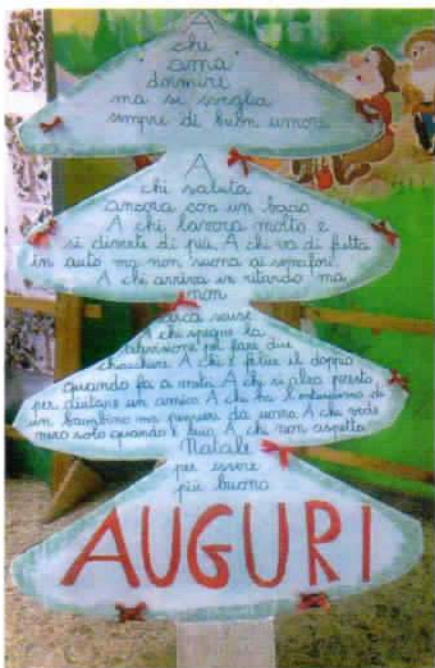 A
chi
ama
dormire
ma si sveglia
sempre di buon umore
A
chi saluta
ancora con un bacio
A chi lavora molto e
si diverte di più. A chi va di fretta
in auto ma non suona ai semafori.
A chi arriva in ritardo ma
non
cerca scuse
A chi spegne la
televisione per fare due
chiacchiere. A chi è felice il doppio
quando fa a metà. A chi si alza presto
per aiutare un amico. A chi ha l'entusiasmo di
un bambino ma pensieri da uomo. A chi vede
nero solo quando è buio. A chi non aspetta
Natale
per essere
più buono
AUGURI